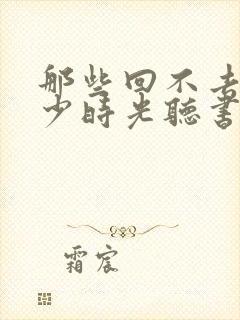 那些回不去
少時光聽書
霜宸